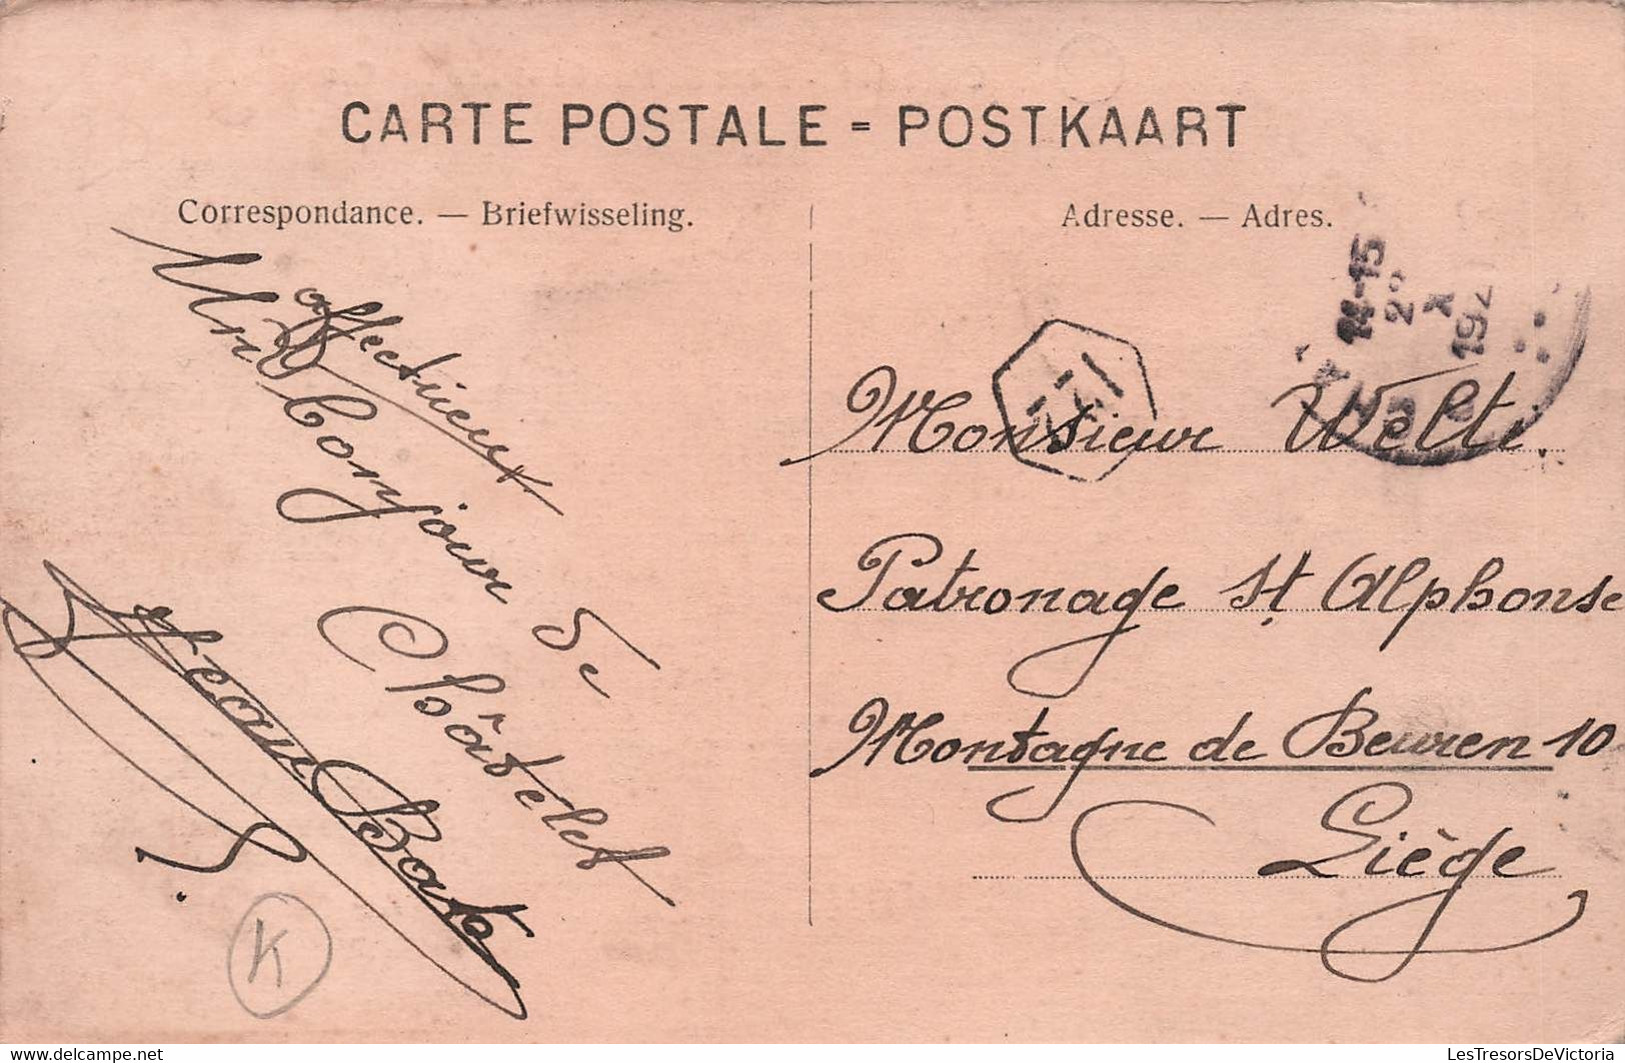 CARTE POSTALE = POSTKAART
Correspondance. — Briefwisseling.
Un Bonjour
affectieux
de
Châtelet
Jean Bats
K
Adresse. — Adres.
14-15
X
192
Monsieur Welt.
Patronage St Alphonse
Montagne de Beuren 10
Liège
www.delcampe.net
LesTresorsDeVictoria